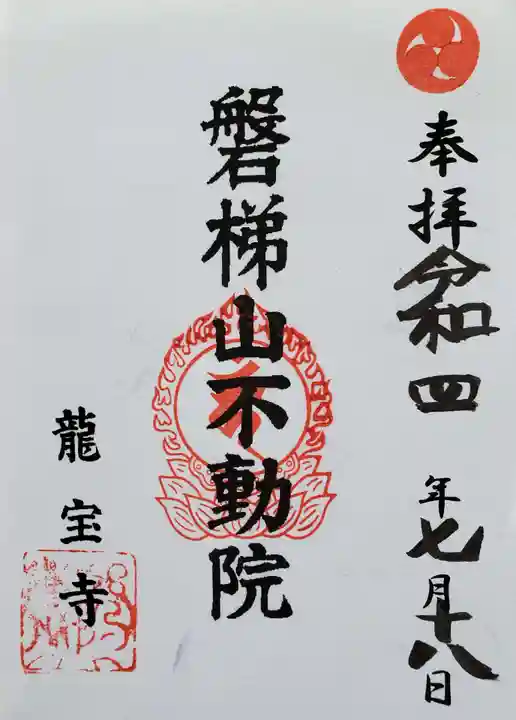 奉拝令和四年七月十八日
磐梯山不動院
龍宝寺